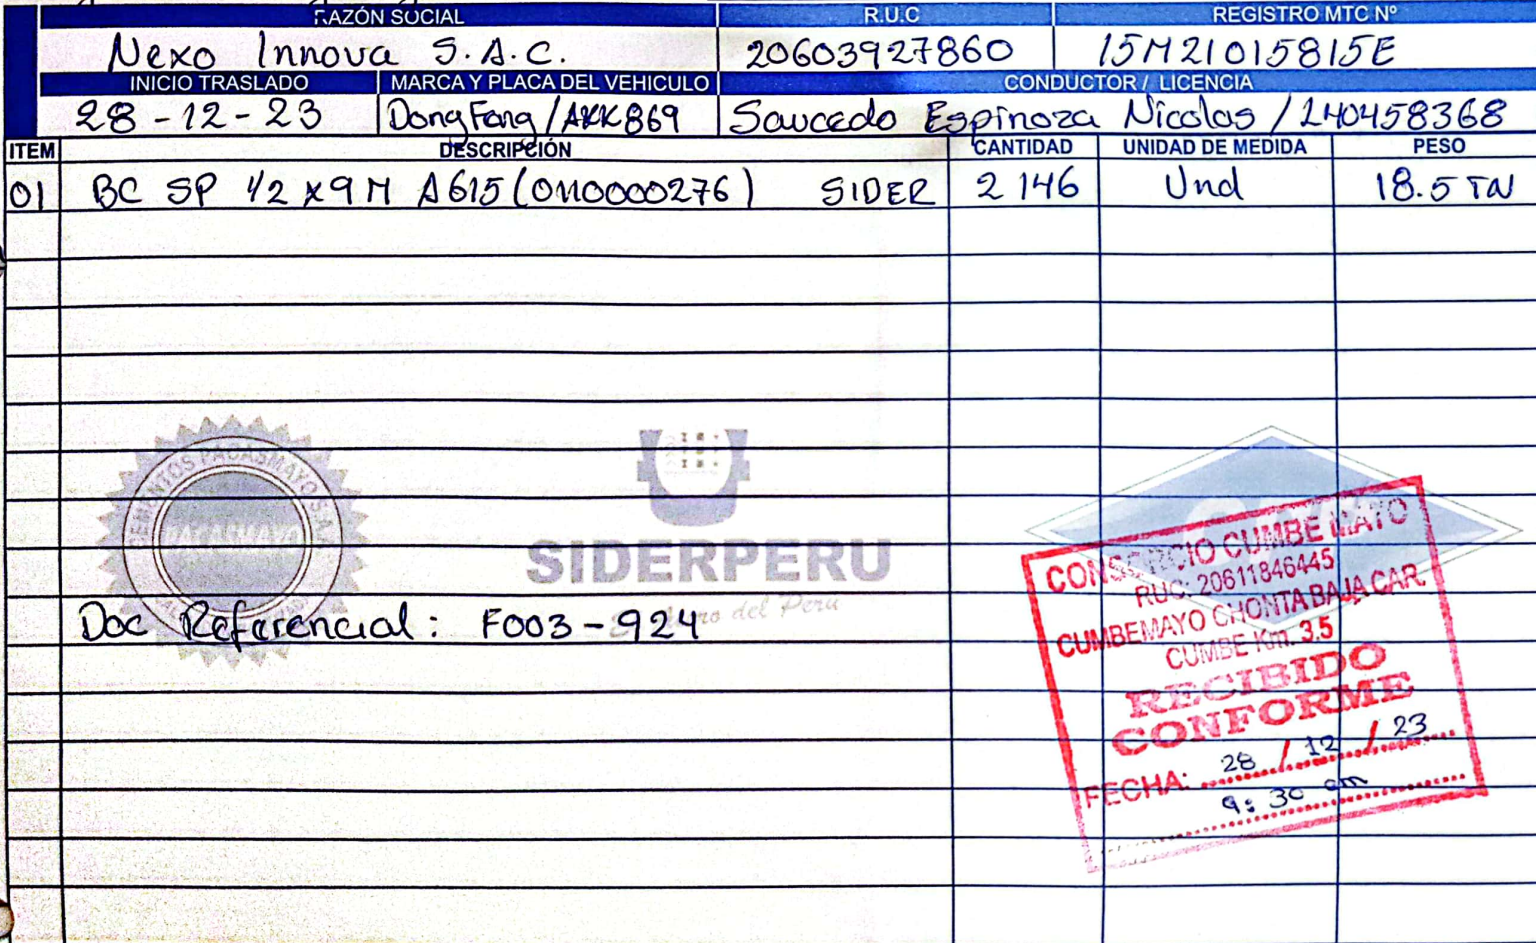 RAZÓN SOCIAL R.U.C REGISTRO MTC Nº
Nexo Innova S.A.C. 20603927860 15M21015815E
INICIO TRASLADO MARCA Y PLACA DEL VEHICULO CONDUCTOR / LICENCIA
28-12-23 DongFang/AKK869 Saucedo Espinoza Nicolas / L40458368
ITEM DESCRIPCIÓN CANTIDAD UNIDAD DE MEDIDA PESO
01 BC SP 1/2 x 9M A615 (0110000276) SIDER 2 146 Und 18.5 TN
CEMENTOS PACASMAYO S.A.A.
SIDERPERU
del Perú
Doc Referencial: F003-924
CONSORCIO CUMBE MAYO
RUC: 20611846445
CUMBEMAYO CHONTA BAJA CAR.
CUMBE Km. 3.5
RECIBIDO
CONFORME
FECHA: 28 / 12 / 23
9:30 am